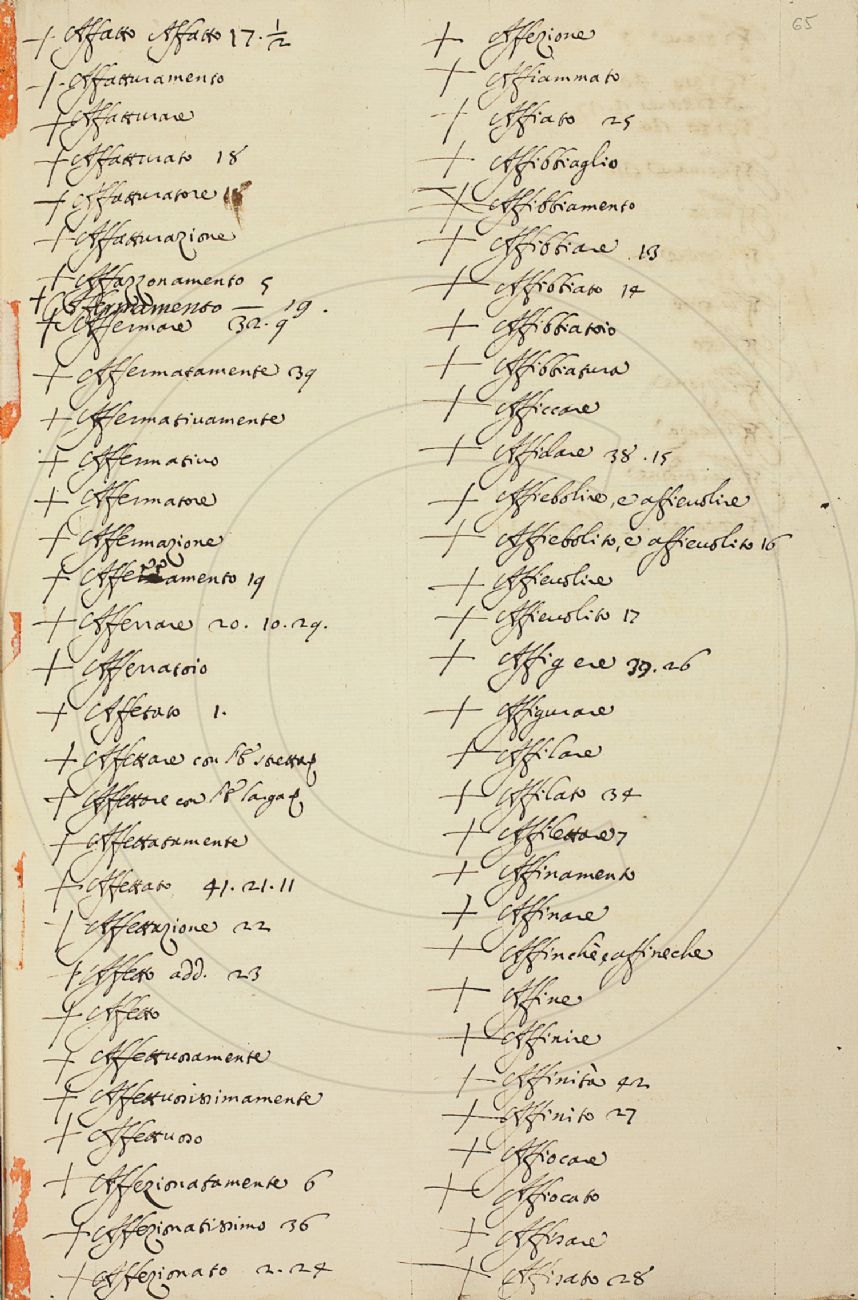 65
+ Affatto Affatto 17. ½
+ Affatturamento
+ Affatturare
+ Affatturato 18
+ Affatturatore 18
+ Affatturazione
+ Affazzonamento 5
+ 19.
+ Affermare 32. 9
+ Affermatamente 39
+ Affermativamente
+ Affermativo
+ Affermatore
+ Affermazione
+ 19
+ Afferrare 20. 10. 29.
+ Afferratoio
+ Affetato 1.
+ Affettare con l'E stretta
+ Affettare con l'E larga
+ Affettatamente
+ Affettato 41. 21. 11
+ Affettazione 22
+ Affetto add. 23
+ Affetto
+ Affettuosamente
+ Affettuosissimamente
+ Affettuoso
+ Affezionatamente 6
+ Affezionatissimo 36
+ Affezionato 2. 24
+ Affezione
+ Affiammato
+ Affiato 25
+ Affibbiaglio
+ Affibbiamento
+ Affibbiare 13
+ Affibbiato 14
+ Affibbiatoio
+ Affibbiatura
+ Afficcare
+ Affidare 38. 15
+ Affiebolire, e affievolire
+ Affiebolito, e affievolito 16
+ Affievolire
+ Affievolito 17
+ Affigere 39. 26
+ Affigurare
+ Affilare
+ Affilato 34
+ Affilettare 7
+ Affinamento
+ Affinare
+ Affinchè, e affineche
+ Affine
+ Affinire
+ Affinità 42
+ Affinito 27
+ Affiocare
+ Affiocato
+ Affisare
+ Affisato 28